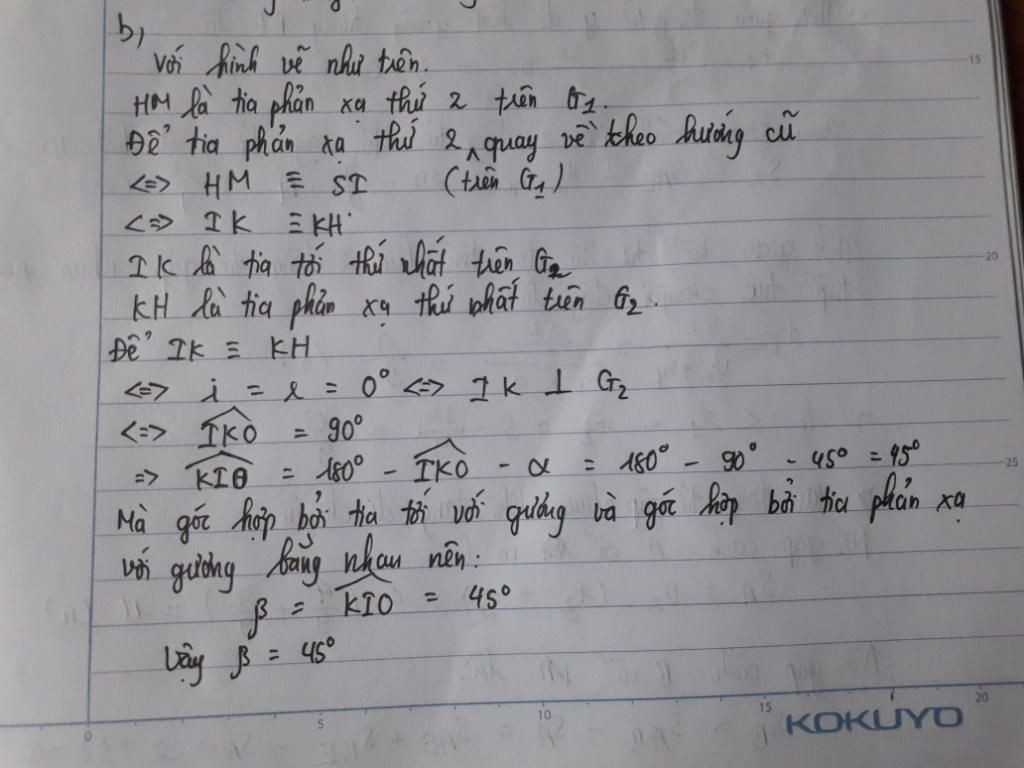 b,
Với hình vẽ như trên.
HM là tia phản xạ thứ 2 trên G₁.
Để tia phản xạ thứ 2 ^ quay về theo hướng cũ
<=> HM ≡ SI (trên G₁)
<=> IK ≡ KH
IK là tia tới thứ nhất trên G₂
KH là tia phản xạ thứ nhất trên G₂.
Để IK ≡ KH
<=> i = r = 0° <=> IK ⊥ G₂
<=> \widehat{IKO} = 90°
=> \widehat{KIO} = 180° - \widehat{IKO} - α = 180° - 90° - 45° = 45°
Mà góc hợp bởi tia tới với gương và góc hợp bởi tia phản xạ
với gương bằng nhau nên:
β = \widehat{KIO} = 45°
Vậy β = 45°
15
20
25
0 5 10 15 20
KOKUYO